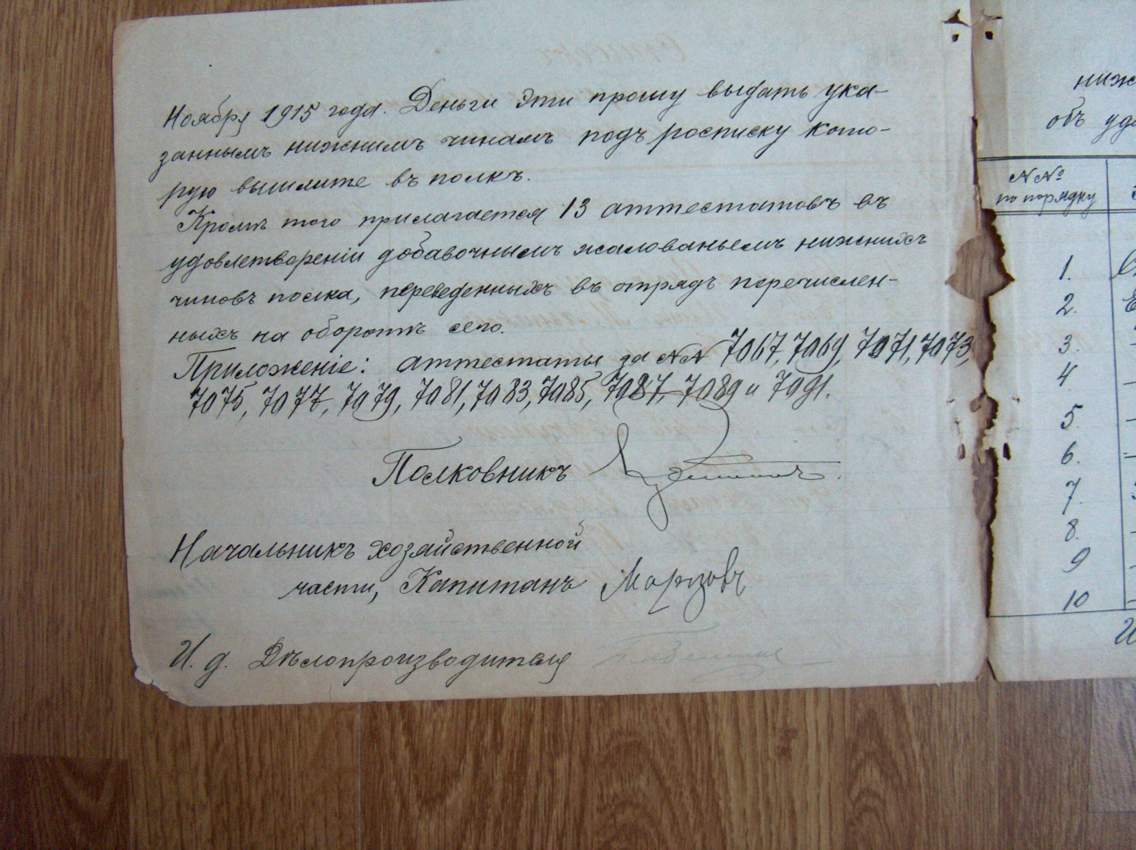 Ноября 1915 года. Деньги эти прошу выдать ука-
занным нижним чинам подъ росписку кото-
рую вышлите въ полкъ.
Кромѣ того прилагается 13 аттестатовъ въ
удовлетворенiи добавочнымъ жалованьемъ нижнихъ
чиновъ полка, переведенныхъ въ отрядъ перечислен-
ныхъ на оборотѣ сего.
Приложенiе: аттестаты за №№ 7067, 7069, 7071, 7073,
7075, 7077, 7079, 7081, 7083, 7085, 7087 7089 и 7091.
Полковникъ
Начальникъ хозяйственной
части, Капитанъ Морозовъ
И. д. Дѣлопроизводителя
ниж
объ удо
№№
по порядку
1.
2.
3.
4
5.
6.
7.
8.
9
10